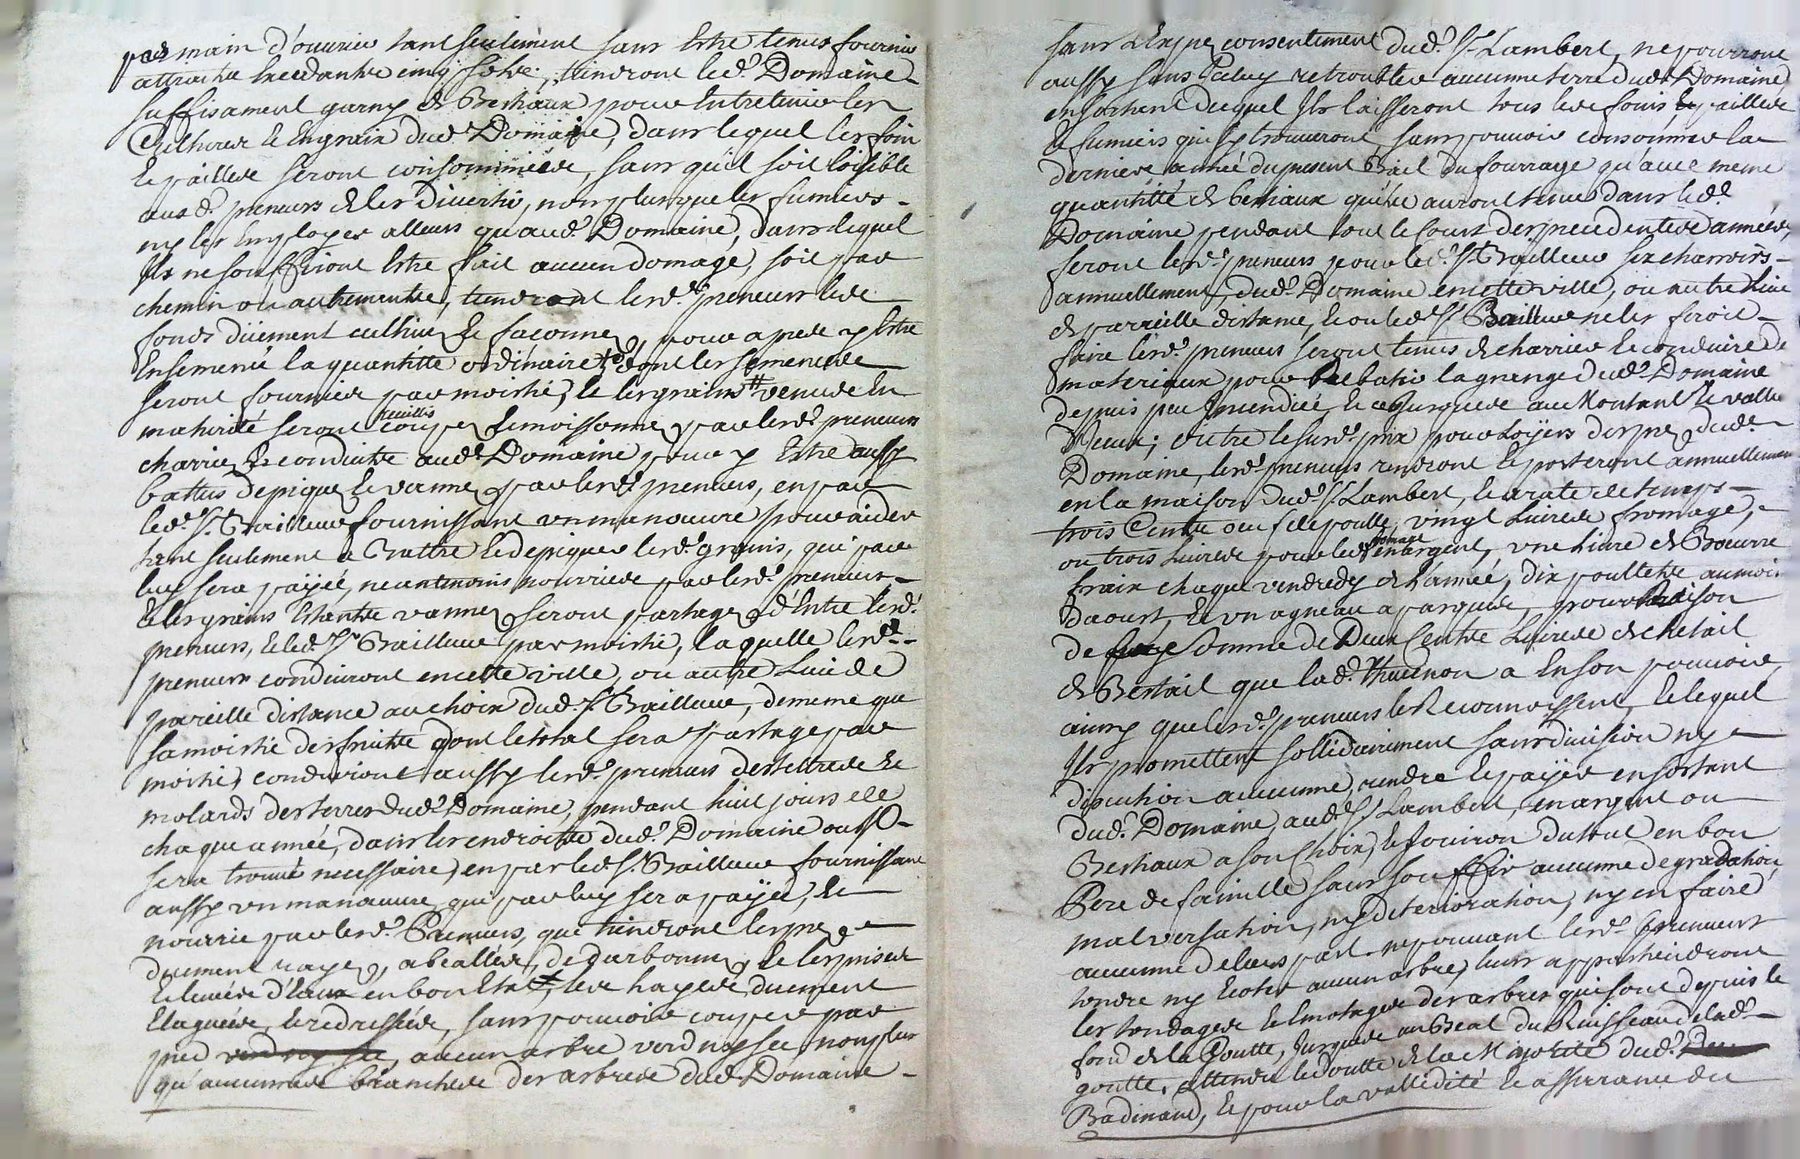 par main d'ouvrier tant seulement sans Estre tenus fournir
attraitz Excedantz cinq solz; tiendront led.t Domaine
suffisament garny de Bestiaux pour Entretenir les
Cultures et Engraix dud.t Domaine, dans lequel les foin
et pailles seront consommées, sans qu'il soit loisible
ausd.s preneurs de les Divertir, non plus que les fumiers
ny les Employer alleurs qu'aud.t Domaine, dans lequel
Ils ne souffriront Estre fait aucun domage, soit par
chemin ou autrement, tiendront lesd.s preneurs les
fonds düement cultivez et façonnez, pour apres y Estre
Ensemencé la quantitté ordinaire dont les semences
seront fournies par moitié, et les grains venues En
maturité seront coupez Et moissonnez par lesd.s preneurs
cueillis
charriez et conduitz aud.t Domaine pour y Estre aussy
battus depiquez et vannez par lesd.s preneurs, en par
led.t S.r Bailleur fournissant un manouvre pour aider
tant seulement a Battre et depiquer lesd.s grains, qui par
luy sera payée, neantmoins nourrie par lesd.s preneurs
et les grains Estantz vannez seront partagez d'Entre lesd.s
preneurs, et led.t S.r Bailleur par moitié, laquelle lesd.s
preneurs conduiront en cette ville, ou autre Lieu de
pareille distance au choix dud.t S.r Bailleur, de meme que
sa moitié des fruitz dont le total sera partagé par
moitié, conduiront aussy lesd.s preneurs des terres et
molards des terres dud.t Domaine, pendant huit jours de
chaque année, dans les endroitz dud.t Domaine ou
sera trouvé necessaire, en par led.t S.r Bailleur fournissant
aussy un manouvre qui par luy sera payée, et
nourrie par lesd.s Preneurs, que tiendront les prez
duement rayez, abeallés, Dedarbonnez, et les prises
et levées d'Eaux en bon Etat, les hayes duement
Elaguées, et redressées, sans pouvoir couper par
pied aucun arbre verd ny sec non plus
qu'aucunes branches des arbres dud.t Domaine
sans L'Expres consentement dud.t S.r Lambert, ne pourront
aussy sans Iceluy retroubler aucune terre dud.t Domaine
en sortant duquel Ils laisseront tous les foins et pailles
et fumiers qui s'y trouveront, sans pouvoir consommer la
derniere année du present Bail du fourrage qu'avec meme
quantitté de bestiaux qu'ils auront tenus dans led.t
Domaine pendant tout le cours des precedentes années,
feront lesd.s preneurs pour led.t S.r Bailleur six charrois
annuellement, dud.t Domaine en cette ville, ou autre Lieu
de pareille distance, et ou led.t S.r Bailleur ne les feroit
faire lesd.s preneurs seront tenus de charrier et conduire de
materiaux pour rebatir la grange dud.t Domaine
depuis peu Incendiée, et ce Jusques au Montant et valleur
d'Iceux; outre le susd.t prix pour Loyers des prez dud.t
Domaine, lesd.s preneurs rendront et porteront annuellement
en la maison dud.t S.r Lambert, et a rate de temps
trois Centz oeufs de poulle, vingt Livres de fromage,
ou trois Livres pour led.t fromage en argent, une Livre de Beurre
fraix chaque vendredy de L'année, dix poulletz au mois
Daoust, et un agneau a paques, pour Raison
de Somme de Deux Centz Livres de Chetail
de Bestail que lad.t Thuenon a En son pouvoir,
ainsy que lesd.s preneurs le Reconnoissent, et lequel
Ils promettent sollidairement sans division ny
discution aucunne, rendre et payer en sortant
dud.t Domaine, aud.t S.r Lambert, en argent ou
Bestiaux a son Choix, et Jouiron du tout en bon
Pere de famille sans souffrir aucunne degradation,
malversation, ny deterioration, ny en faire
aucunne de leurs part, ne pouvant lesd.s preneurs
tondre ny Ecoter aucun arbre, leurs appartiendront
les tondages et Emotages des arbres qui sont depuis le
fond de la Goutte, Jusques au Beal du Ruisseau de lad.t
goutte, attendu et doutte de la Mijotité dud.t
Badinand, et pour la vallidité et assurance du